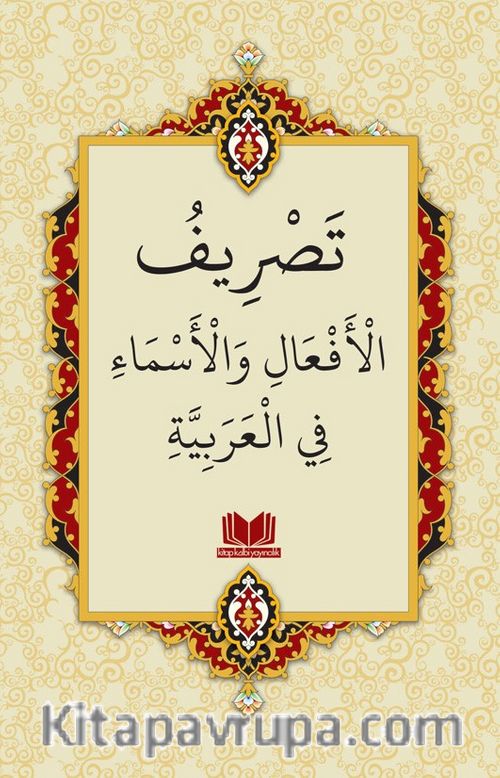 تَصْرِيفُ
الْأَفْعَالِ وَالْأَسْمَاءِ
فِي الْعَرَبِيَّةِ
kitap kalbi yayıncılık
Kitapavrupa.com